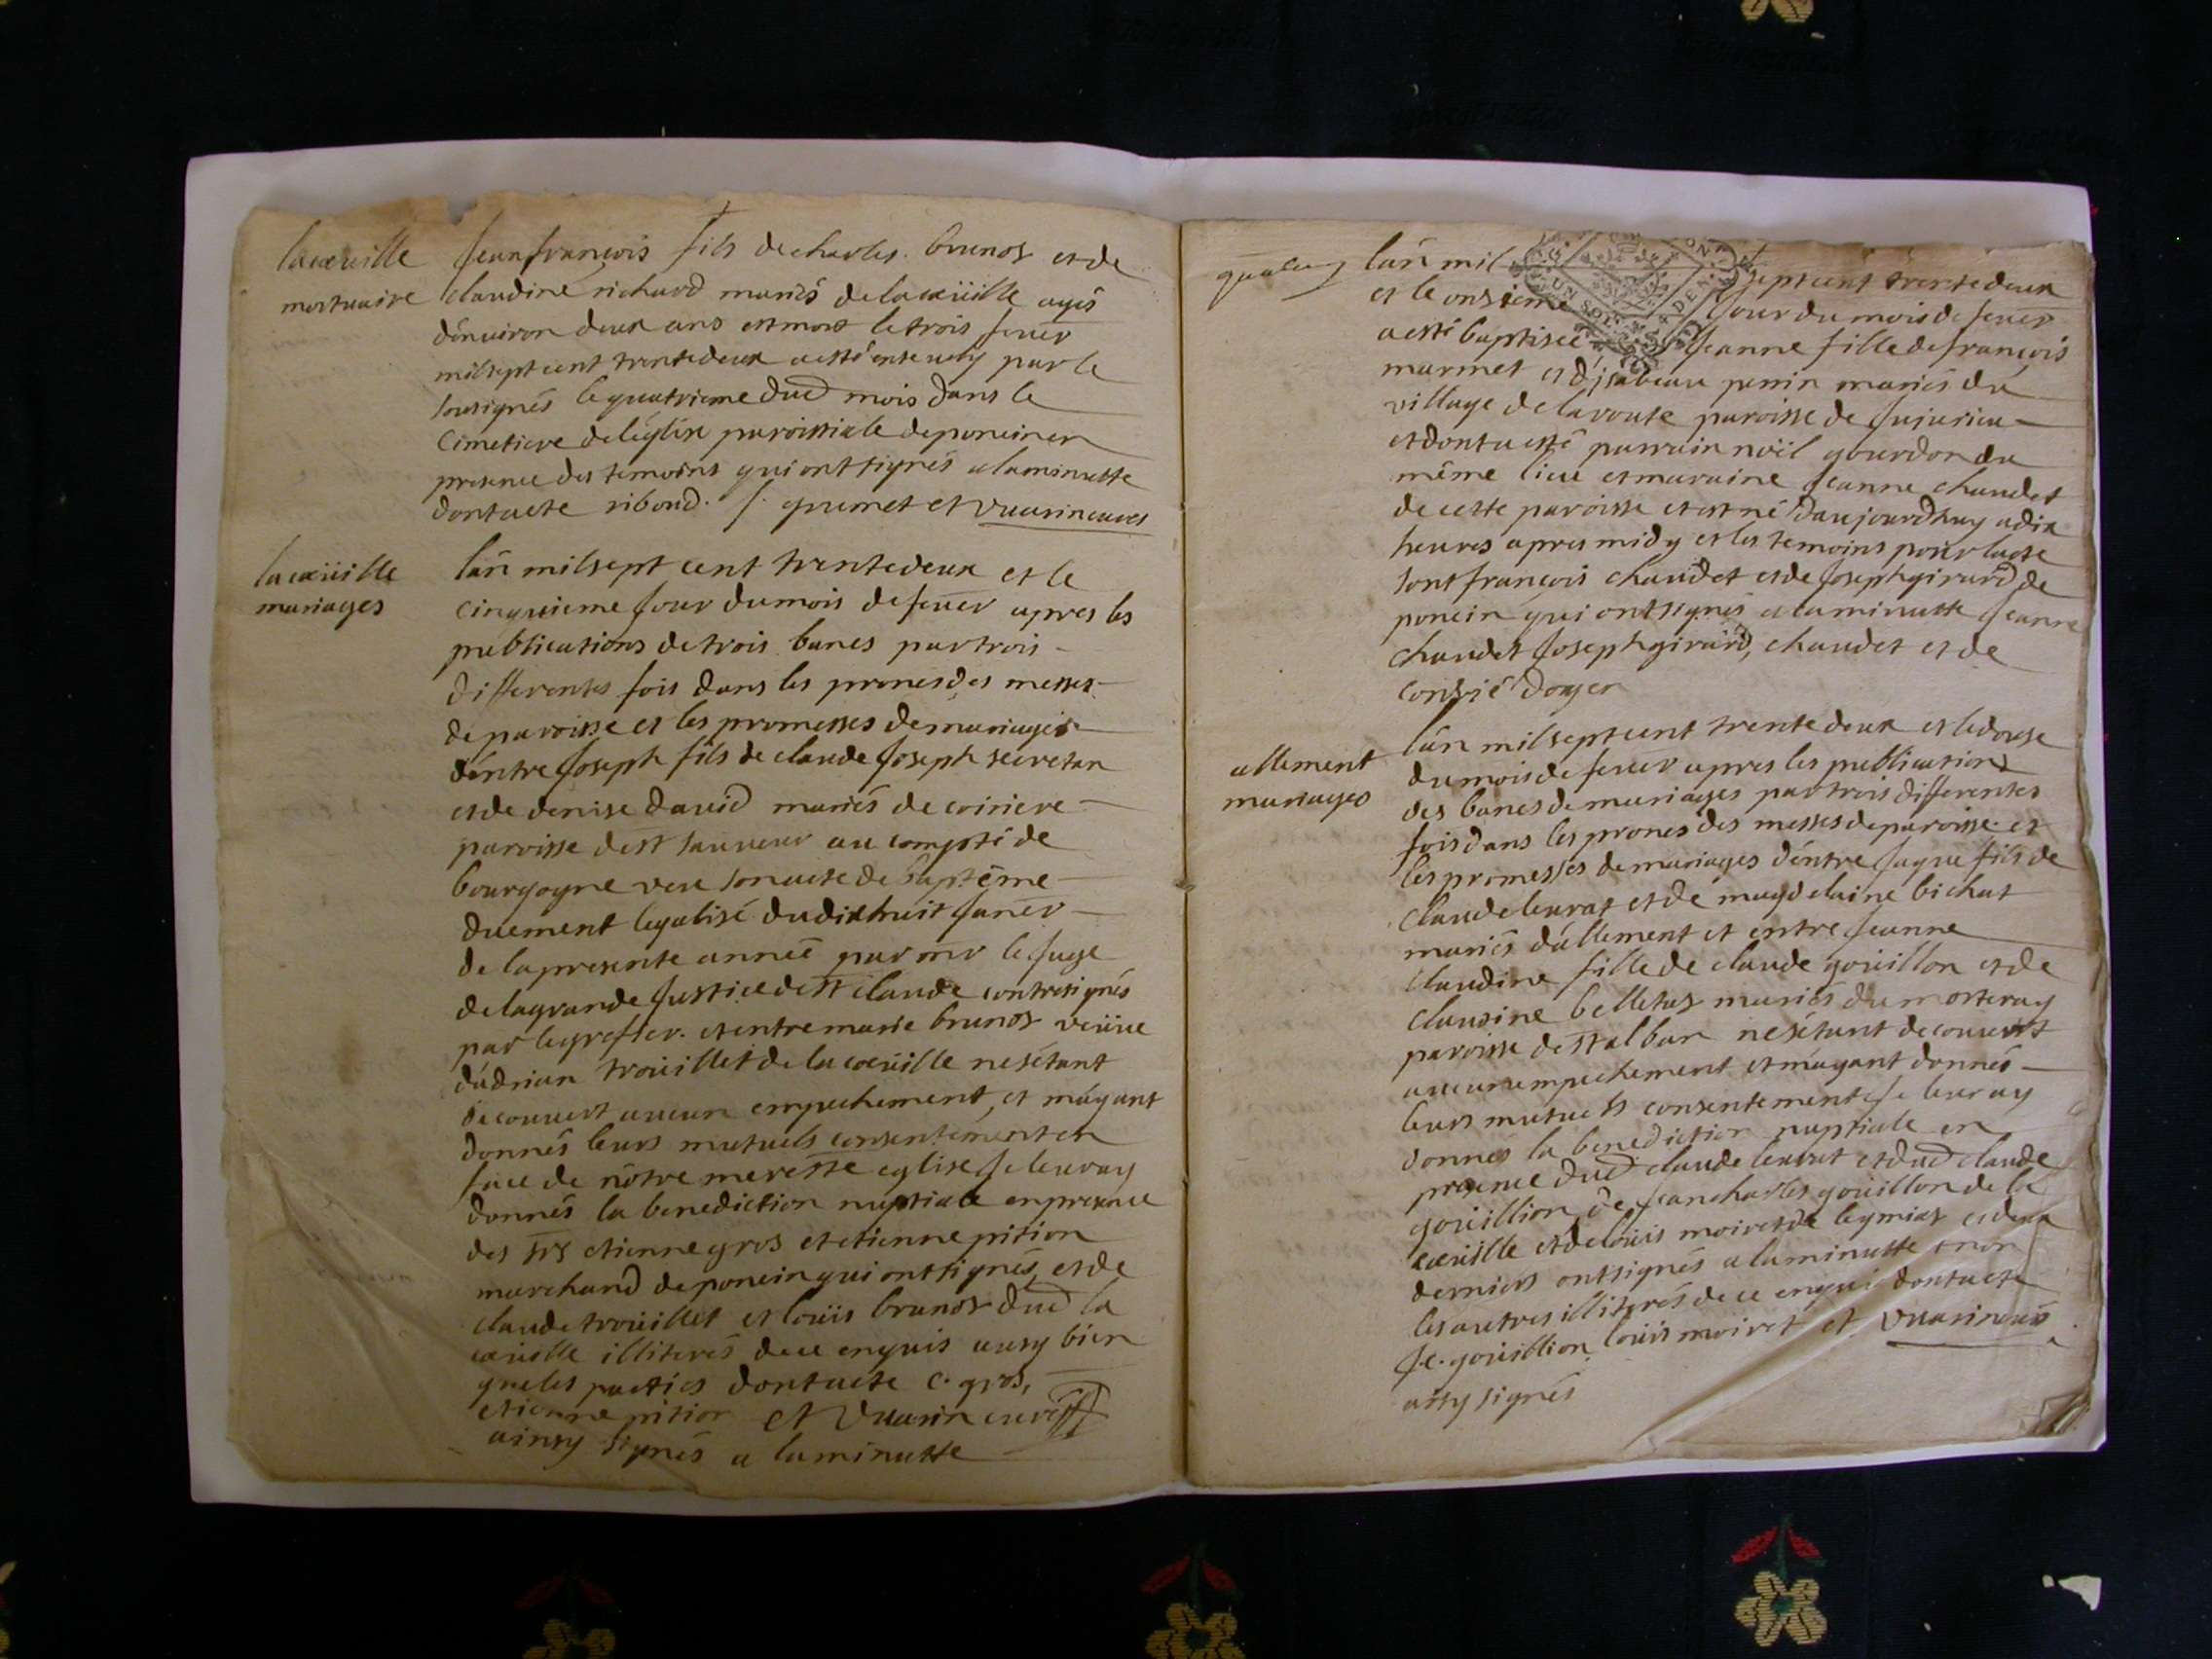 lacœuille
mortuaire
Jeanfrançois fils decharles brunos et de
claudine richard mariés delacœüille agés
d'énuiron deux ans estmort letrois feuer
milsept cent trentedeux a esté enseuely par le
sousignés lequatrieme dud mois dans le
Cimetiere del'églisse paroissiale deponcin en
presence des temoins qui ont signés alaminutte
dontacte ribond. J. grumet et Vuarin curés
lacœüille
mariages
lán milsept cent trentedeux et le
cinquieme Jour dumois defeuer apres les
publications detrois bancs partrois
differentes fois dans les pronesdes messes
deparoisse et les promesses demariages
d'éntre Joseph fils de claude Joseph secretan
etde denise dauid mariés de coiriere
paroisse dest sauueur au compté de
bourgogne veu sonacte de baptême
duement legalisé dudixhuit Janer
de lapresente année par mr le Juge
delagrande Justice dest claude contresignés
par legreffier. et entre marie brunos veüue
d'ádrian troüillet de lacœüille nesétant
decouuert aucun empechement, et m'áyant
donnés leurs mutuels consentement en
face de nôtre mere ste eglise Je leur ay
donnés la benediction nuptiale en presence
des srs etienne gros et etienne pition
marchand de poncin qui ont signés, et de
claude troüillet et loüis brunos dud la
cœüille illiterés dece enquis aussy bien
queles parties dontacte c. gros,
etienne pition et Vuarin curés
ainsy signés a laminutte
lán mil septcent trente deux
et le onzieme Jour du mois de feuer
a esté baptisée Jeanne fille de françois
marmet et d'jsabeau perrin mariés du
village de la route paroisse de Jujurieu
et dont a esté parrain noïl gourdon du
même lieu et maraine Jeanne chaudet
de cette paroisse et est né d'aujourdhuy a dix
heures apres midy et les temoins pour lacte
sont françois chaudet et de Joseph girard de
poncin qui ont signés a laminutte Jeanne
chaudet Joseph girard, chaudet et de
allement
mariages
lán milseptcent trente deux et ledouse
dumois de feuer apres les publications
des bancs de mariages par trois differentes
fois dans les prones des messes de paroisse et
les promesses de mariages d'éntre Jaque fils de
claude leurat et de magdelaine bichat
mariés d'állement et entre Jeanne
claudine fille de claude goüillon et de
claudine belletas mariés du morteray
paroisse de st alban nesétant decouuert
aucun empechement et m'áyant donnés
leurs mutuels consentement Je leur ay
donnés la benediction nuptiale en
presence dud claude leurat et dud claude
goüillion, de Jean charles goüillon de la
cœüille et de loüis moiret de leymiat et deux
derniers ont signés a laminutte et non
les autres illiterés de ce enquis dontacte
J.c. goüillion loüis moiret et Vuarin curés
ainsy signés